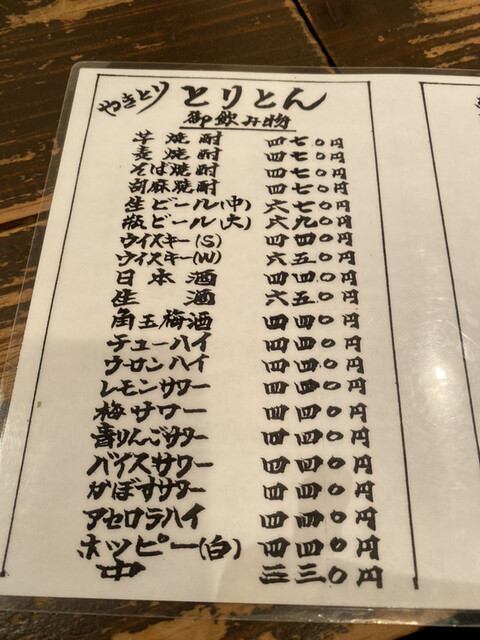 やきとり とりとん
御飲み物
芋焼酎 四七〇円
麦焼酎 四七〇円
そば焼酎 四七〇円
胡麻焼酎 四七〇円
生ビール(中) 六七〇円
瓶ビール(大) 六九〇円
ウイスキー(S) 四四〇円
ウイスキー(W) 六五〇円
日本酒 四四〇円
生酒 六五〇円
角玉梅酒 四四〇円
チューハイ 四四〇円
ウーロンハイ 四四〇円
レモンサワー 四四〇円
梅サワー 四四〇円
青りんごサワー 四四〇円
バイスサワー 四四〇円
かぼすサワー 四四〇円
アセロラハイ 四四〇円
ホッピー(白) 四四〇円
中 三三〇円